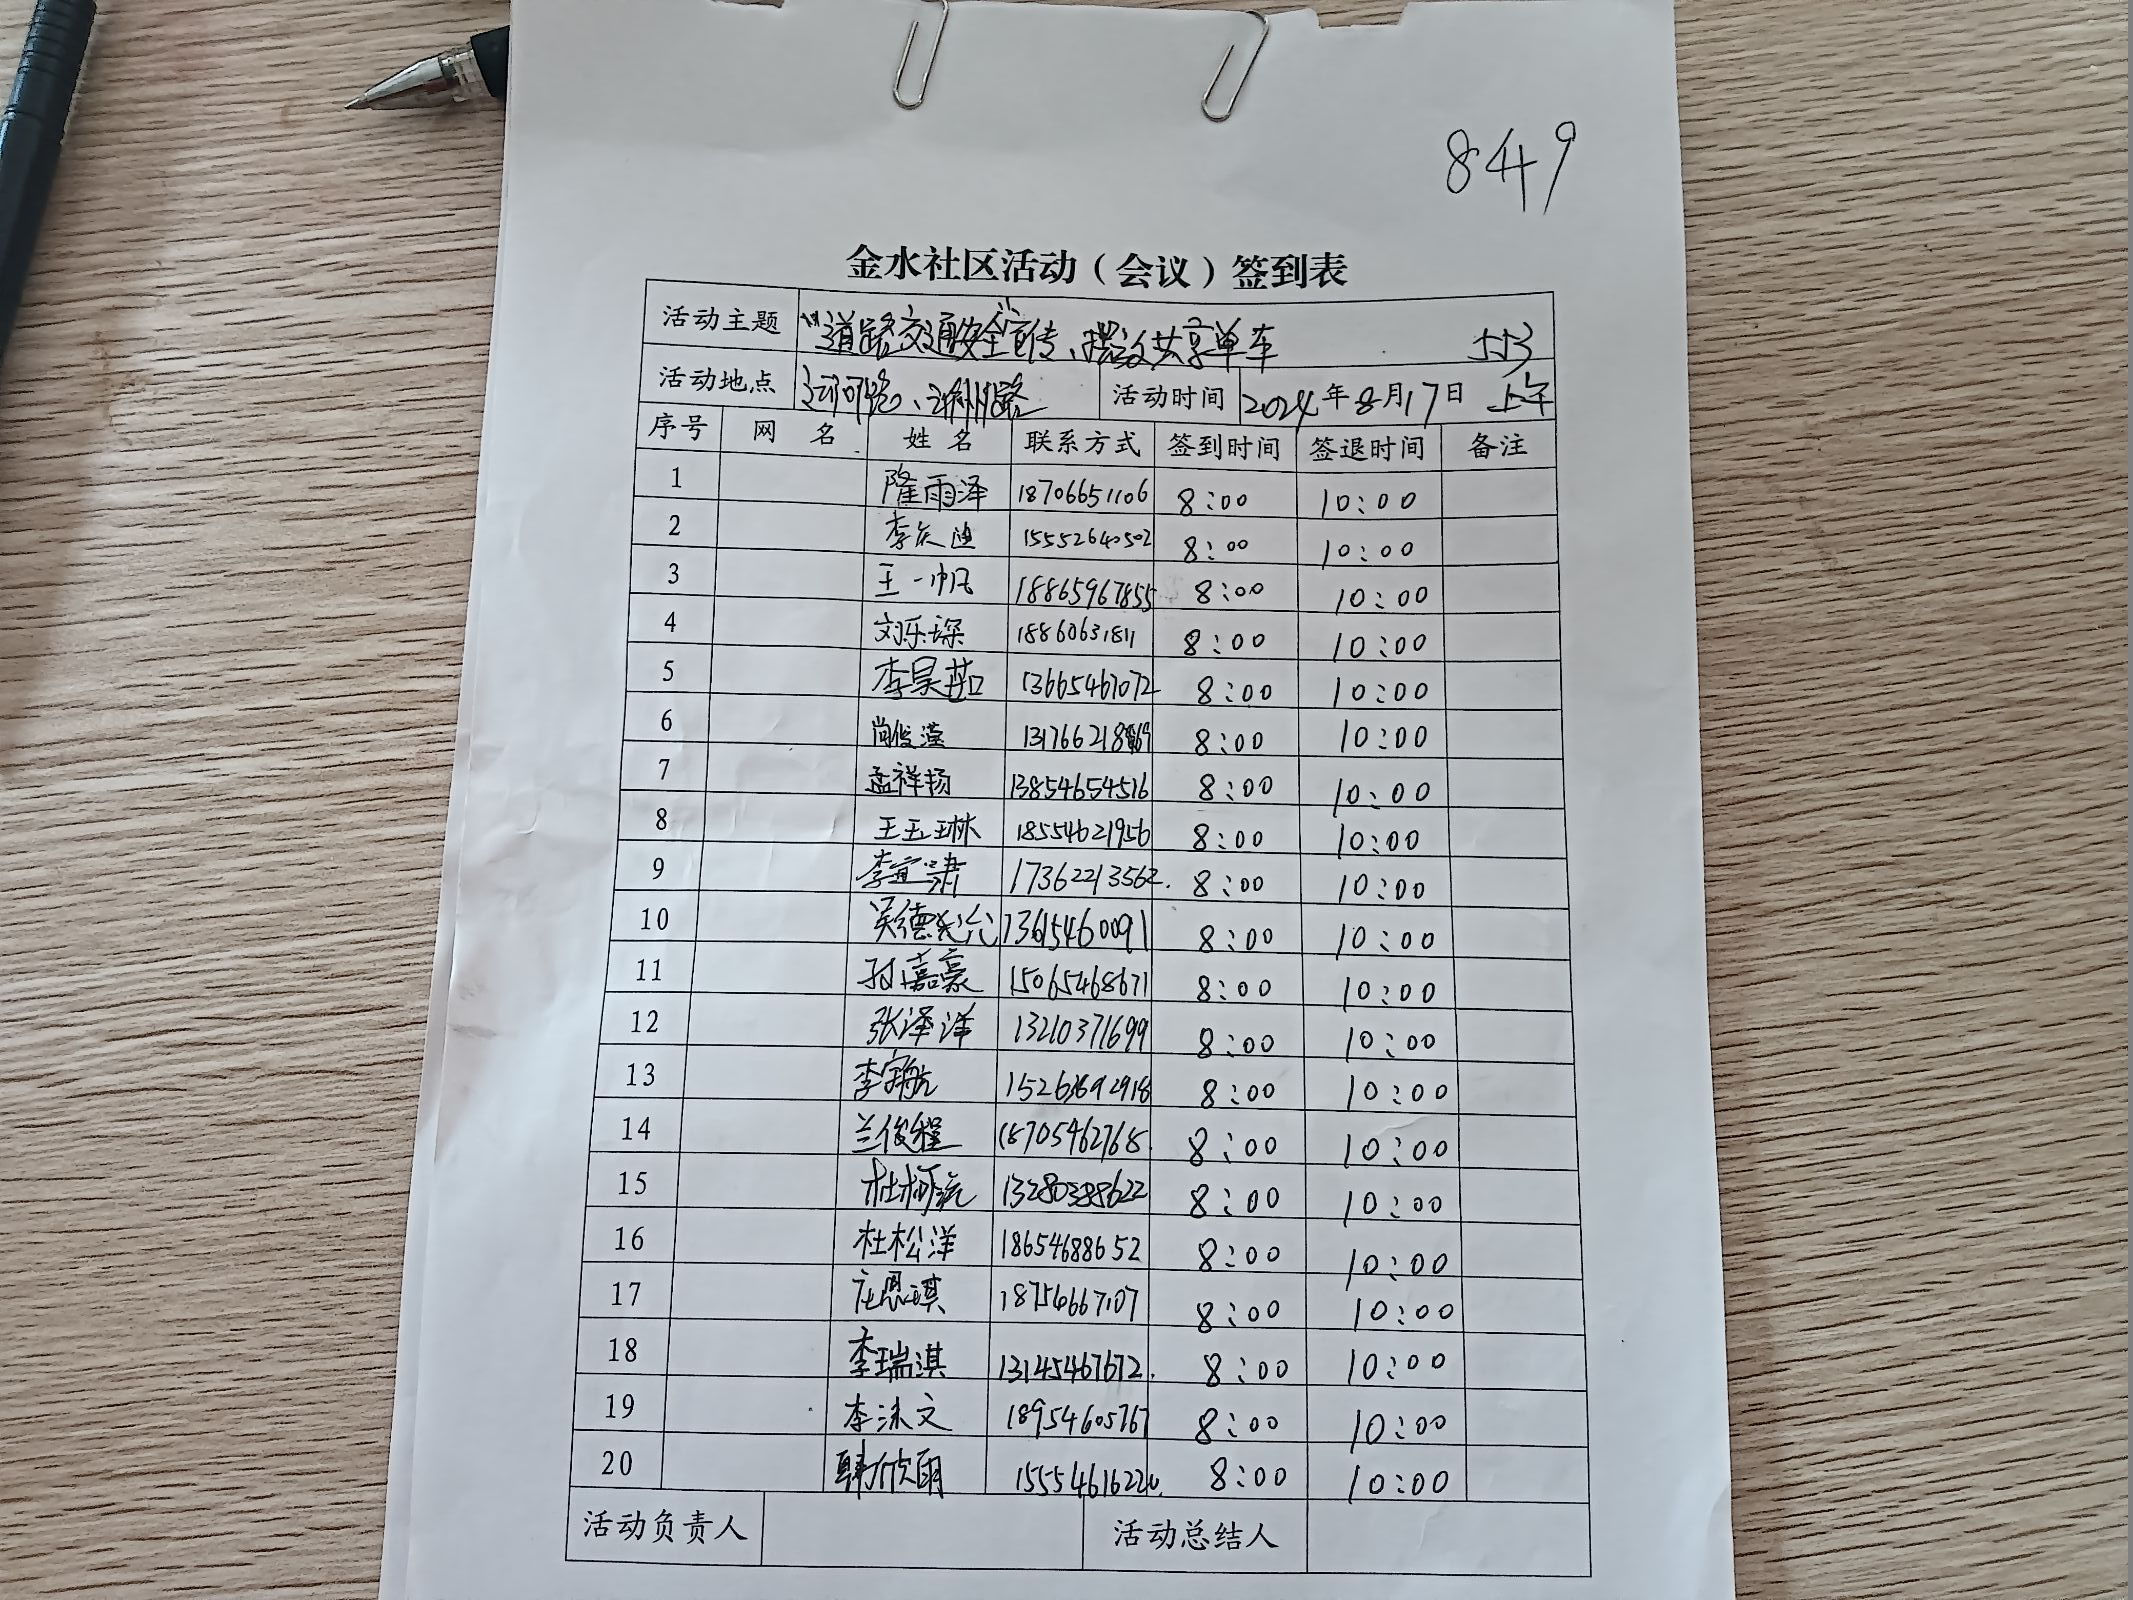 849
金水社区活动（会议）签到表
活动主题 "道路交通安全"宣传、摆放共享单车 553
活动地点 运河路、沂州路 活动时间 2024年8月17日 上午
序号 网 名 姓 名 联系方式 签到时间 签退时间 备注
1 隆雨泽 18706651106 8:00 10:00
2 15552640502 8:00 10:00
3 王一帆 18865967855 8:00 10:00
4 刘乐琛 18860631811 8:00 10:00
5 李昊茹 13665467072 8:00 10:00
6 尚俊滢 8:00 10:00
7 孟祥扬 13854654516 8:00 10:00
8 王玉琳 18554621956 8:00 10:00
9 李宜潇 17362213562. 8:00 10:00
10 吴德 13615460091 8:00 10:00
11 孙嘉豪 15065468671 8:00 10:00
12 张泽洋 13210371699 8:00 10:00
13 李宇航 8:00 10:00
14 兰俊程 18705462768. 8:00 10:00
15 杜柯 13280388622 8:00 10:00
16 杜松洋 18654688652 8:00 10:00
17 庄恩琪 18754667107 8:00 10:00
18 李瑞淇 13145467672. 8:00 10:00
19 李沐文 18954605767 8:00 10:00
20 韩欣雨 8:00 10:00
活动负责人 活动总结人